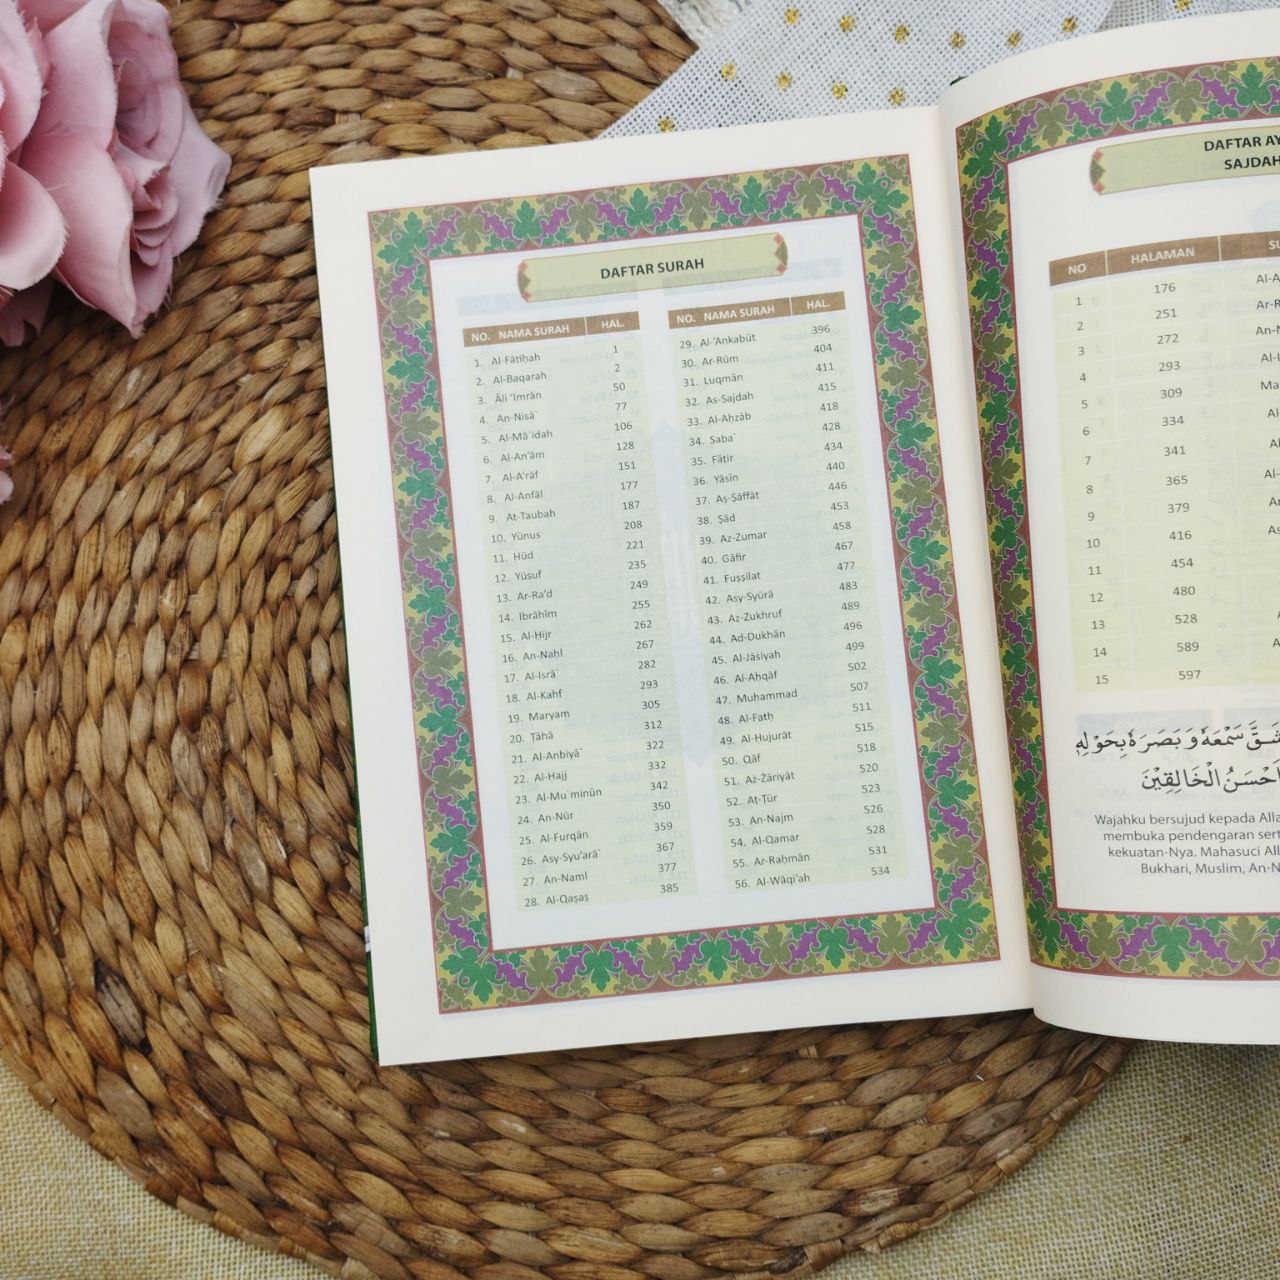 DAFTAR SURAH
NO. NAMA SURAH HAL.
1. Al-Fātiḥah 1
2. Al-Baqarah 2
3. Āli ‘Imrān 50
4. An-Nisā` 77
5. Al-Mā`idah 106
6. Al-An‘ām 128
7. Al-A‘rāf 151
8. Al-Anfāl 177
9. At-Taubah 187
10. Yūnus 208
11. Hūd 221
12. Yūsuf 235
13. Ar-Ra‘d 249
14. Ibrāhīm 255
15. Al-Ḥijr 262
16. An-Naḥl 267
17. Al-Isrā` 282
18. Al-Kahf 293
19. Maryam 305
20. Ṭāhā 312
21. Al-Anbiyā` 322
22. Al-Ḥajj 332
23. Al-Mu`minūn 342
24. An-Nūr 350
25. Al-Furqān 359
26. Asy-Syu‘arā` 367
27. An-Naml 377
28. Al-Qaṣaṣ 385
NO. NAMA SURAH HAL.
29. Al-‘Ankabūt 396
30. Ar-Rūm 404
31. Luqmān 411
32. As-Sajdah 415
33. Al-Aḥzāb 418
34. Saba` 428
35. Fāṭir 434
36. Yāsīn 440
37. Aṣ-Ṣāffāt 446
38. Ṣād 453
39. Az-Zumar 458
40. Gāfir 467
41. Fuṣṣilat 477
42. Asy-Syūrā 483
43. Az-Zukhruf 489
44. Ad-Dukhān 496
45. Al-Jāṡiyah 499
46. Al-Aḥqāf 502
47. Muḥammad 507
48. Al-Fatḥ 511
49. Al-Ḥujurāt 515
50. Qāf 518
51. Aż-Żāriyāt 520
52. Aṭ-Ṭūr 523
53. An-Najm 526
54. Al-Qamar 528
55. Ar-Raḥmān 531
56. Al-Wāqi‘ah 534
DAFTAR AY
SAJDAH
NO HALAMAN SU
1 176 Al-A
2 251 Ar-R
3 272 An-N
4 293 Al-I
5 309 Ma
6 334 Al
7 341 Al
8 365 Al-
9 379 An
10 416 As
11 454
12 480
13 528
14 589
15 597
شَقَّ سَمْعَهُ وَبَصَرَهُ بِحَوْلِهِ
اَحْسَنُ الْخَالِقِيْنَ
Wajahku bersujud kepada Alla
membuka pendengaran sert
kekuatan-Nya. Mahasuci All
Bukhari, Muslim, An-N